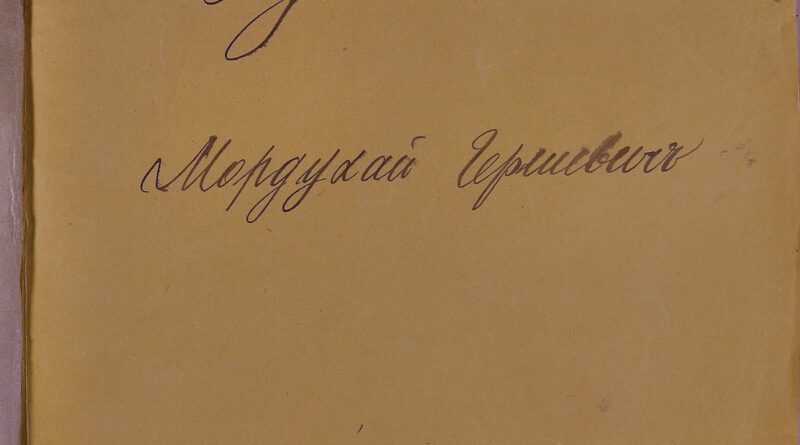 Мордухай Гершевичъ